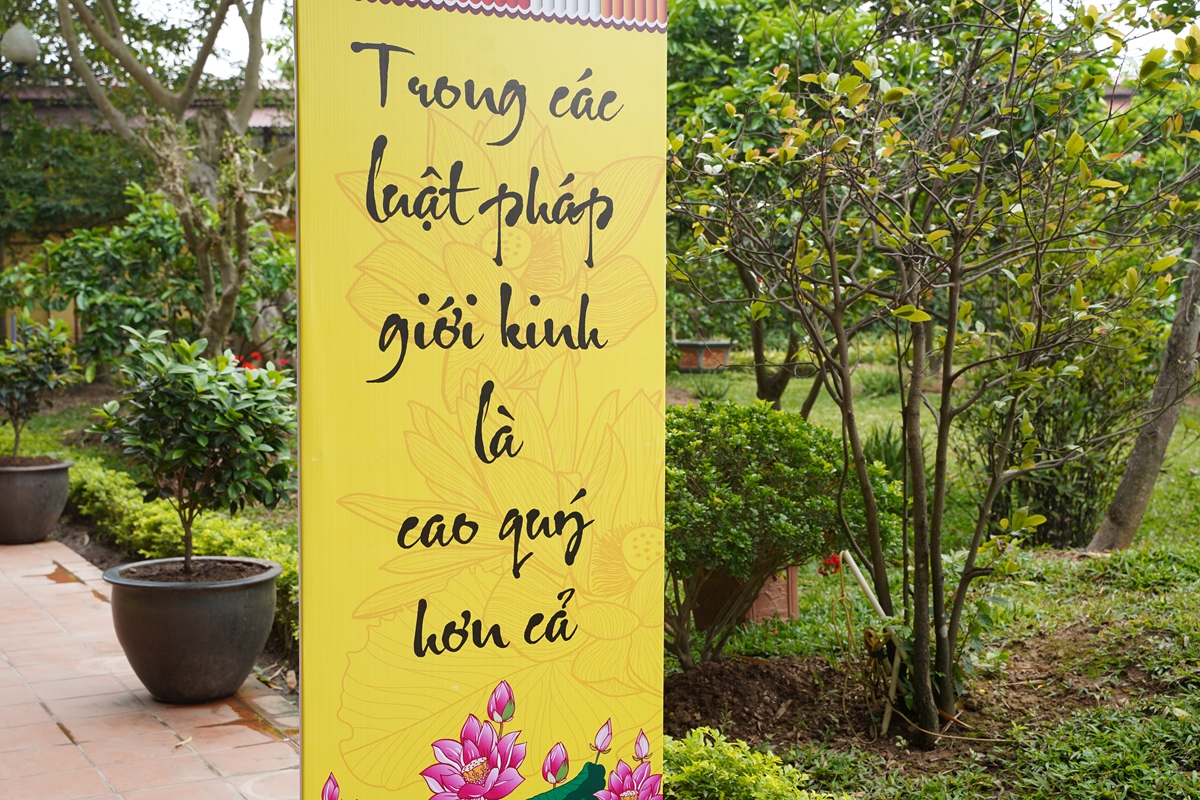 Trong các
luật pháp
giới kinh
là
cao quý
hơn cả